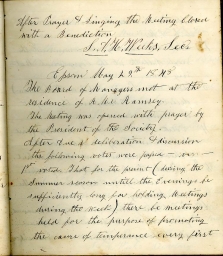 after Prayer & Singing the Meeting Closed
with a Benediction
Sec
Epsom May 29th 1848
The Board of Managers met at the
residence of Ramsey.
The Meeting was opened with prayer by
the President of the Society.
After due deliberation & discussion
the following votes were passed viz
1st voted. That for the present (during the
Summer season until the Evenings be
sufficiently long for holding Meetings
during the week) there be meetings
held for the purpose of promoting
the cause of temperance every first